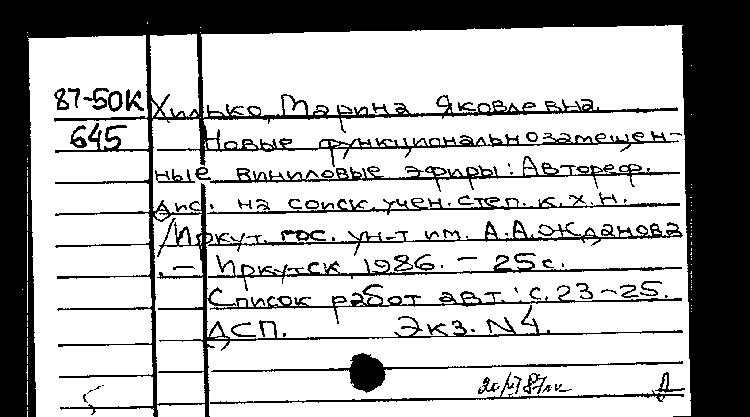 87-50К Хилько, Марина Яковлевна.
645 Новые функциональнозамещен-
ные виниловые эфиры: Автореф.
дис. на соиск. учен. степ. к. х. н.
/Иркут. гос. ун-т им. А.А. Жданова
. – Иркутск, 1986. – 25 с.
Список работ авт.: с. 23-25.
ДСП. Экз. N4.